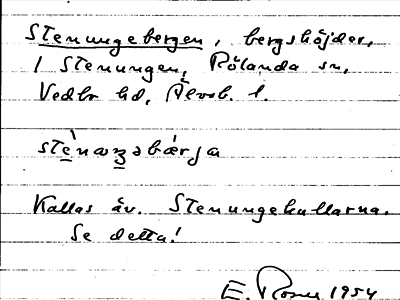 Stenungebergen, bergshöjder,
I Stenungen, Rölanda sn,
Vedbo hd, Älvsb. l.
Kallas äv. Stenungekullarna.
Se detta!
E. 1954